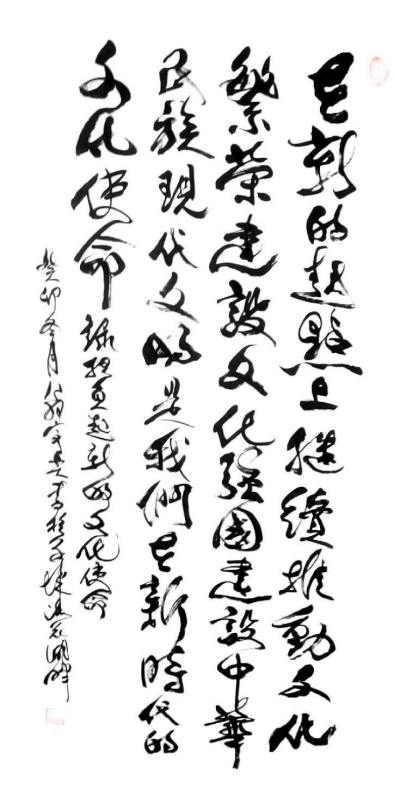 在新的起點上繼續推動文化
繁榮建設文化强國建設中華
民族現代文明是我們在新時代的
文化使命
錄担負起新的文化使命
癸卯冬月 書於 湖畔